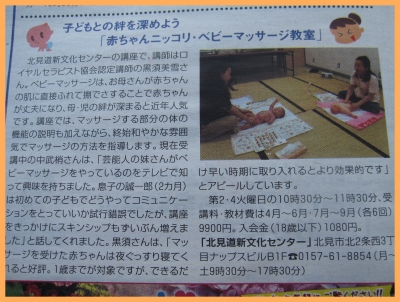 子どもとの絆を深めよう
「赤ちゃんニッコリ・ベビーマッサージ教室」
北見道新文化センターの講座で、講師はロ
イヤルセラピスト協会認定講師の黒須美雪さ
ん。ベビーマッサージは、お母さんが赤ちゃん
の肌に直接ふれて撫でさすることで赤ちゃん
が丈夫になり、母・児の絆が深まると近年人気
です。講座では、マッサージする部分の体の
機能の説明も加えながら、終始和やかな雰囲
気でマッサージの方法を指導します。現在受
講中の中武梢さんは、「芸能人の妹さんがベ
ビーマッサージをやっているのをテレビで知
って興味を持ちました。息子の誠一郎(2カ月)
は初めての子どもでどうやってコミュニケー
ションをとっていいか試行錯誤でしたが、講座
をきっかけにスキンシップもずいぶん増えま
した」と話してくれました。黒須さんは、「マッ
サージを受けた赤ちゃんは夜ぐっすり寝てく
れると好評。1歳までが対象ですが、できるだ
け早い時期に取り入れるとより効果的です」
とアピールしています。
第2・4火曜日の10時30分～11時30分、受
講料・教材費は4月～6月・7月～9月(各6回)
9900円。入会金(18歳以下)1080円。
「北見道新文化センター」北見市北2条西3丁
目ナップスビルB1F☎0157-61-8854(月～
土9時30分～17時30分)